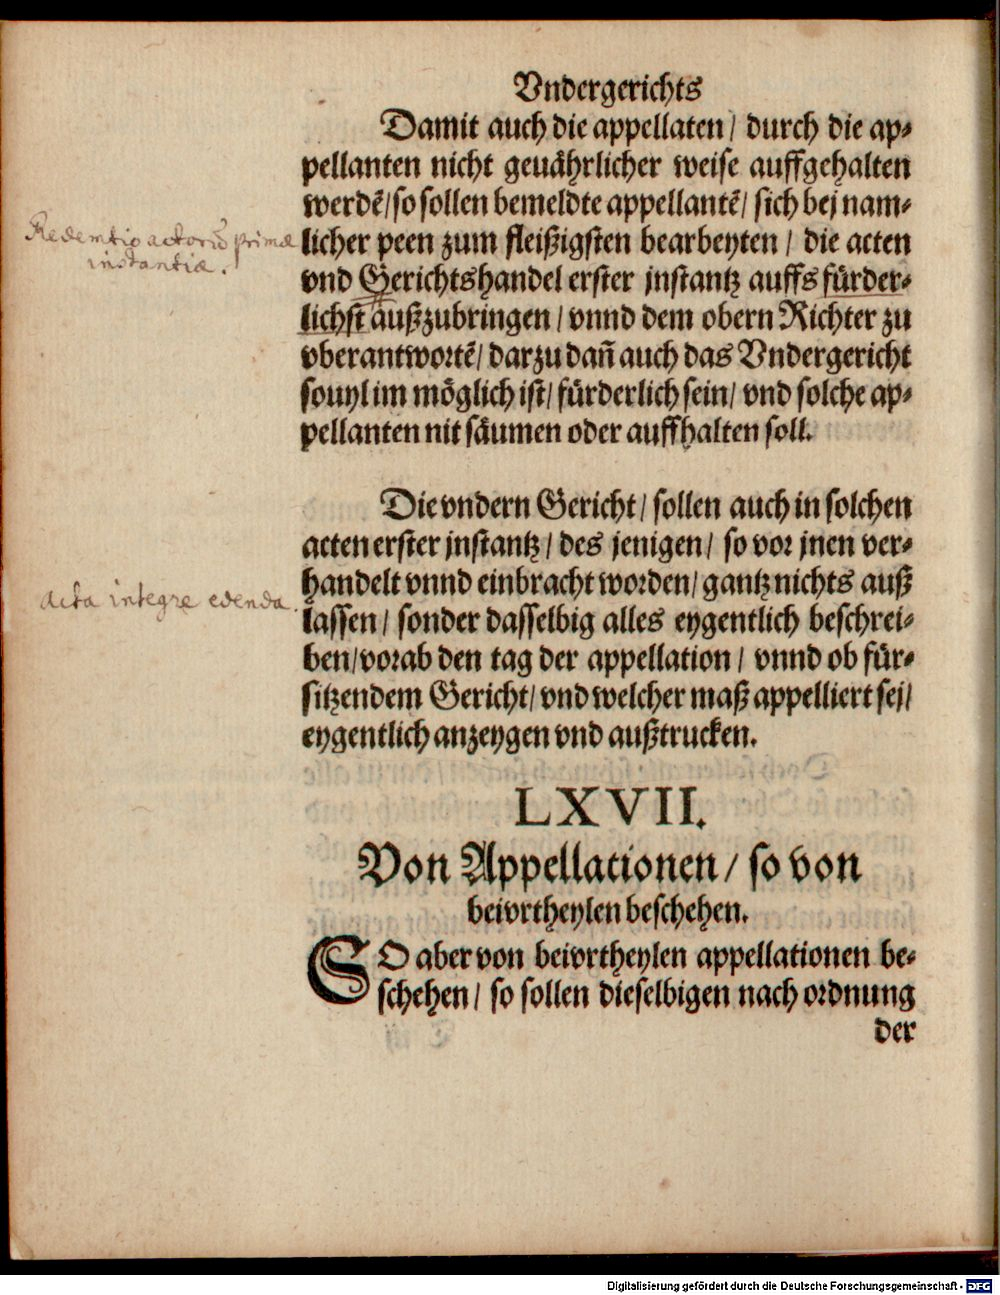 Vndergerichts
Damit auch die appellaten / durch die ap⸗
pellanten nicht geuährlicher weise auffgehalten
werdẽ / so sollen bemeldte appellantẽ / sich bej nam⸗
licher peen zum fleißigsten bearbeyten / die acten
vnd Gerichtshandel erster jnstantz auffs fürder⸗
lichst außzubringen / vnnd dem obern Richter zu
vberantwortẽ / darzu dañ auch das Vndergericht
souyl im möglich ist / fürderlich sein / vnd solche ap⸗
pellanten nit säumen oder auffhalten soll.
Redemtio actorũ primæ
instantiæ.
Die vndern Gericht / sollen auch in solchen
acten erster jnstantz / des jenigen / so vor jnen ver⸗
handelt vnnd einbracht worden / gantz nichts auß
lassen / sonder dasselbig alles eygentlich beschrei⸗
ben / vorab den tag der appellation / vnnd ob für⸗
sitzendem Gericht / vnd welcher maß appelliert sej /
eygentlich anzeygen vnd außtrucken.
acta integre edenda.
LXVII.
Von Appellationen / so von
beivrtheylen beschehen.
SO aber von beivrtheylen appellationen be⸗
schehen / so sollen dieselbigen nach ordnung
der
Digitalisierung gefördert durch die Deutsche Forschungsgemeinschaft - DFG